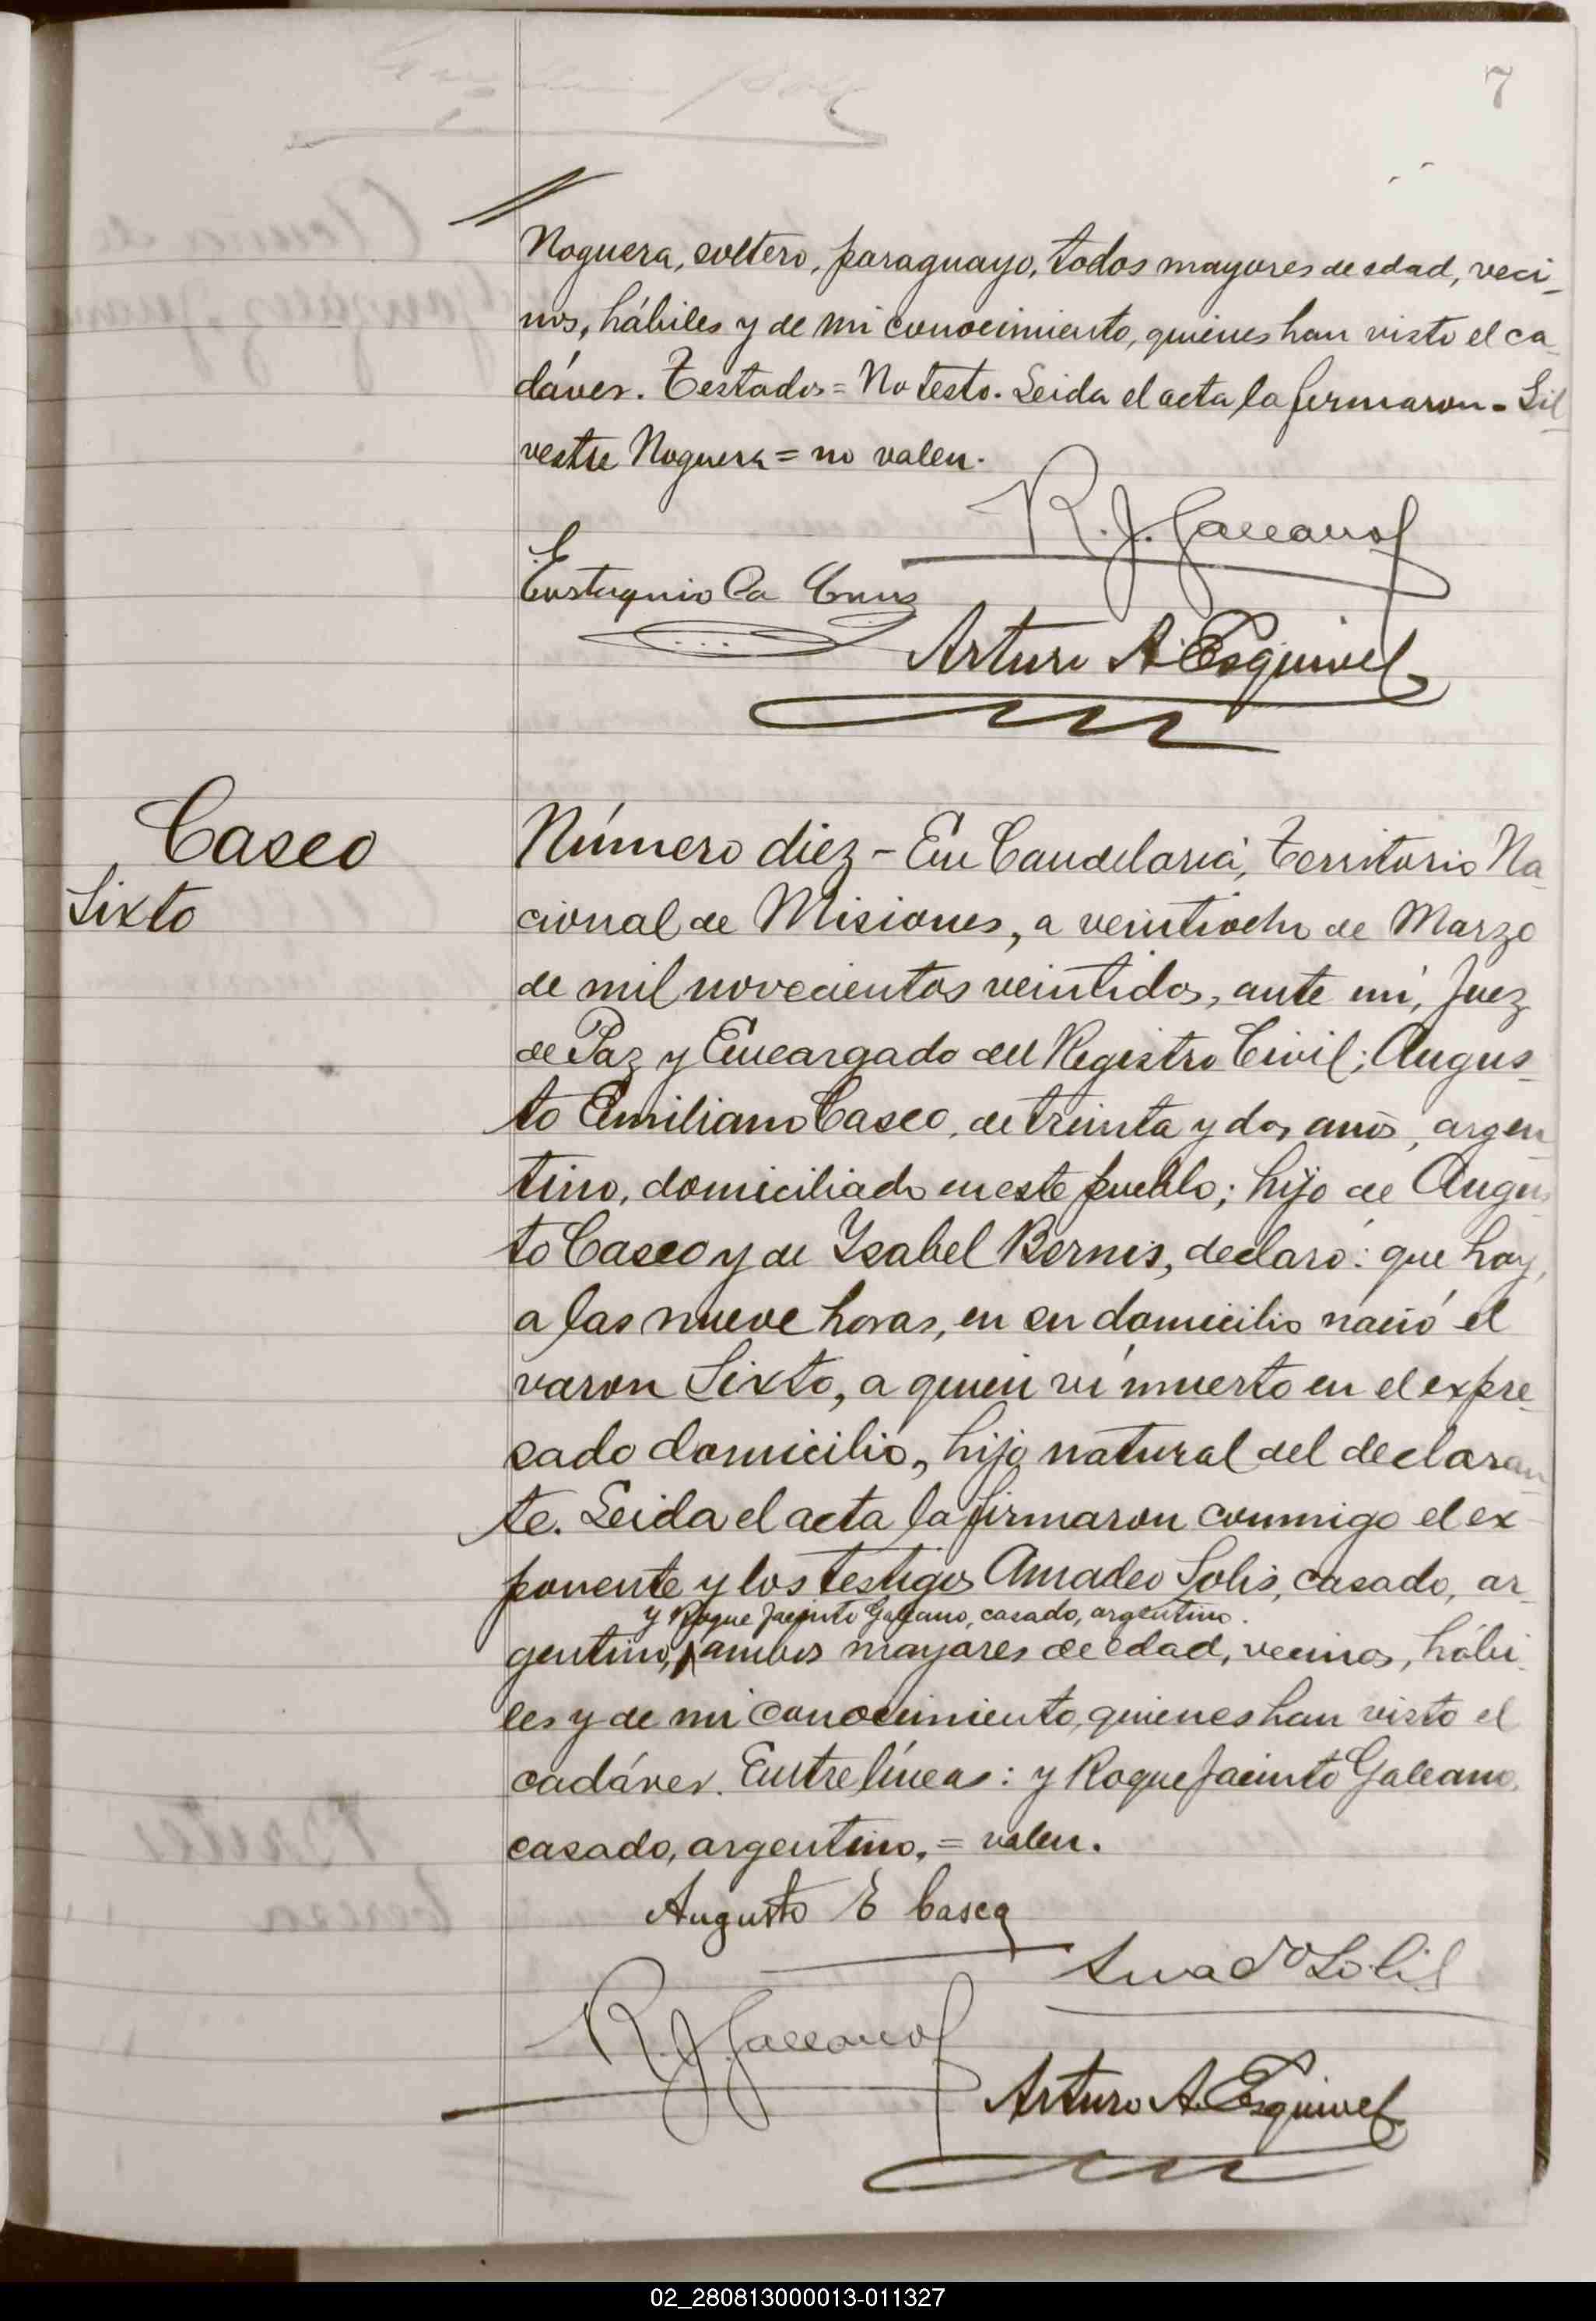 7
Noguera, soltero, paraguayo, todos mayores de edad, veci-
nos, hábiles y de mi conocimiento, quienes han visto el ca-
dáver. Testados = No testo. Leida el acta la firmaron - Sil-
vestre Noguera = no valen.
R. J. Galeano
Eustaquio Da Cruz
Arturo A. Esquivel
Casco
Sixto
Número diez - En Candelaria, Territorio Na-
cional de Misiones, a veintiocho de Marzo
de mil novecientos veintidos, ante mí, Juez
de Paz y Encargado del Registro Civil; Augus-
to Emiliano Casco, de treinta y dos años, argen-
tino, domiciliado en este pueblo; hijo de Augus-
to Casco y de Ysabel Bernis, declaró: que hoy,
a las nueve horas, en su domicilio nació el
varon Sixto, a quien ví muerto en el expre-
sado domicilio, hijo natural del declaran-
te. Leida el acta la firmaron conmigo el ex-
ponente y los testigos Amadeo Solis, casado, ar-
y Roque Jacinto Galeano, casado, argentino.
gentino, ambos mayores de edad, vecinos, hábi-
les y de mi conocimiento, quienes han visto el
cadáver. Entrelíneas: y Roque Jacinto Galeano,
casado, argentino, = valen.
Augusto E Casco
Amado Solis
R. J. Galeano
Arturo A. Esquivel
02_280813000013-011327